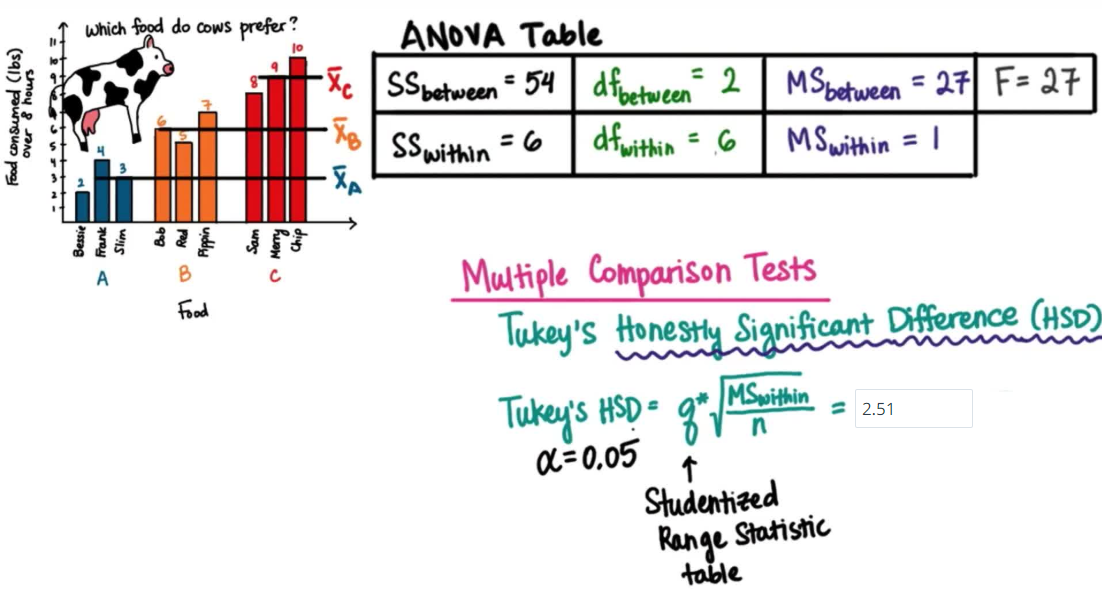 Which food do cows prefer?
Food consumed (lbs)
over 8 hours
11
10
9
8
7
6
5
4
3
2
1
2
4
3
6
5
7
8
9
10
X̄C
X̄B
X̄A
Bessie
Frank
Slim
Bob
Red
Pippin
Sam
Merry
Chip
A
B
C
Food
ANOVA Table
SSbetween = 54 dfbetween = 2 MSbetween = 27 F = 27
SSwithin = 6 dfwithin = 6 MSwithin = 1
Multiple Comparison Tests
Tukey's Honestly Significant Difference (HSD)
Tukey's HSD = q* √(MSwithin / n) = 2.51
α = 0.05
↑
Studentized
Range Statistic
table